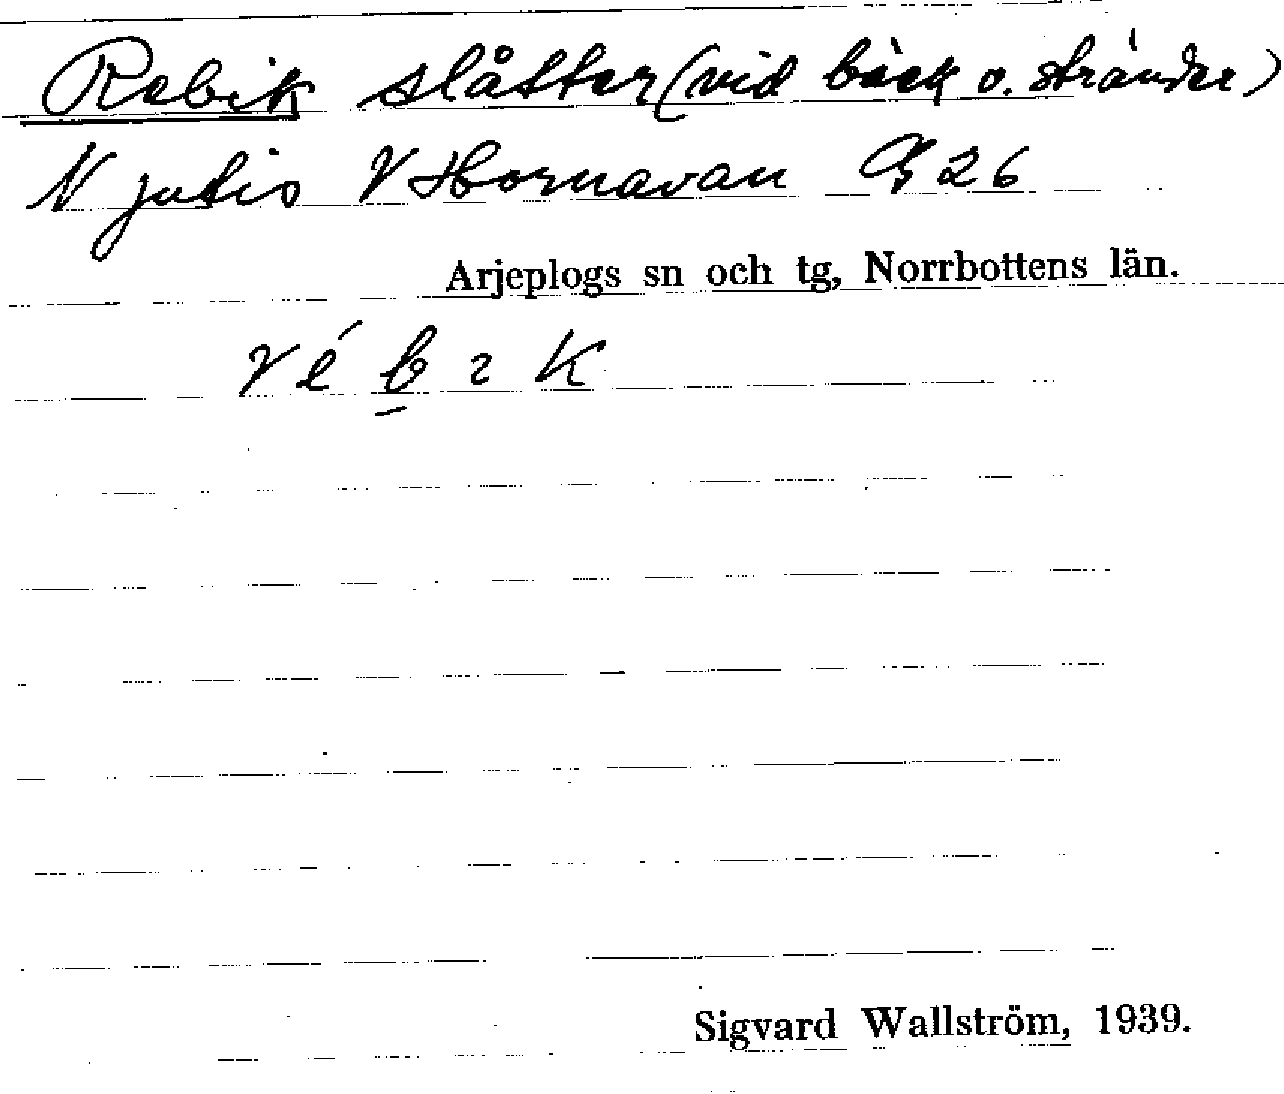 Rebik slåtter (vid bäck o. stränder)
Njutis V Hornavan G 26
Arjeplogs sn och tg, Norrbottens län.
r é b ɩ k
Sigvard Wallström, 1939.